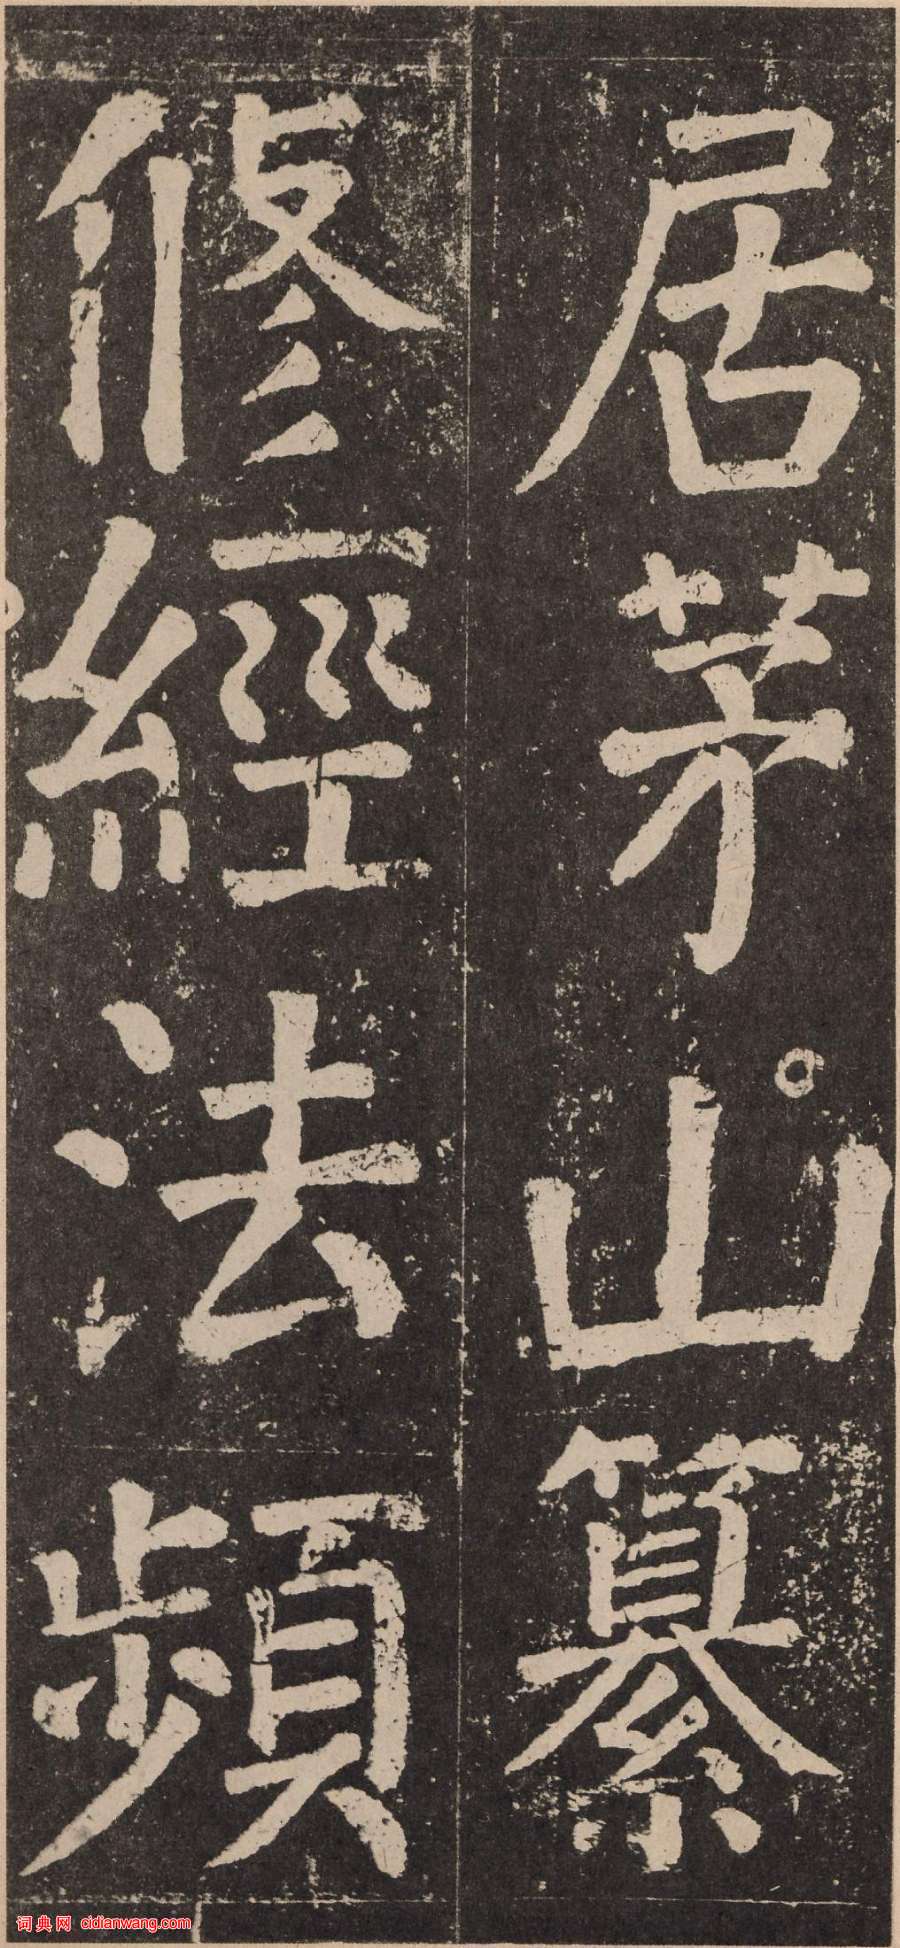 居茅山纂
修經法頻
词典网 cidianwang.com